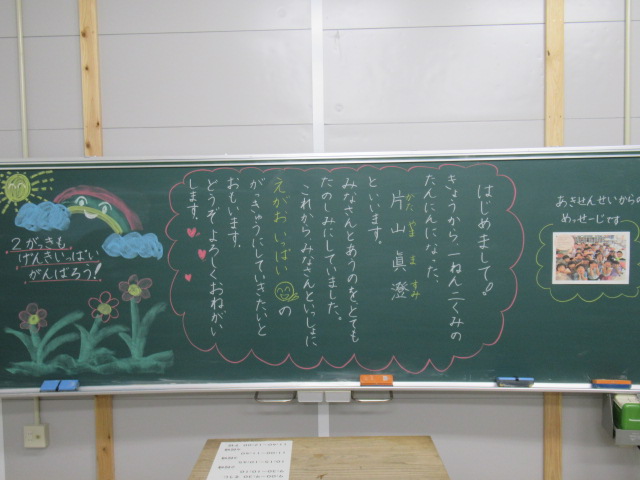 あきせんせいからの
めっせーじです
はじめまして!
きょうから、一ねん二くみの
たんにんになった、
かた やま ま すみ
片山眞澄
といいます。
みなさんとあうのを、とても
たのしみにしていました。
これからみなさんといっしょに
えがおいっぱいの
がっきゅうにしていきたいと
おもいます。
どうぞよろしくおねがい
します。
2がっきも
げんきいっぱい
がんばろう!